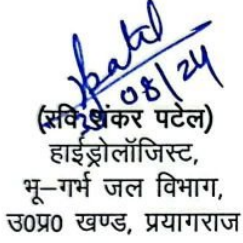 patel
08/24
(रवि शंकर पटेल)
हाईड्रोलॉजिस्ट,
भू–गर्भ जल विभाग,
उ0प्र0 खण्ड, प्रयागराज